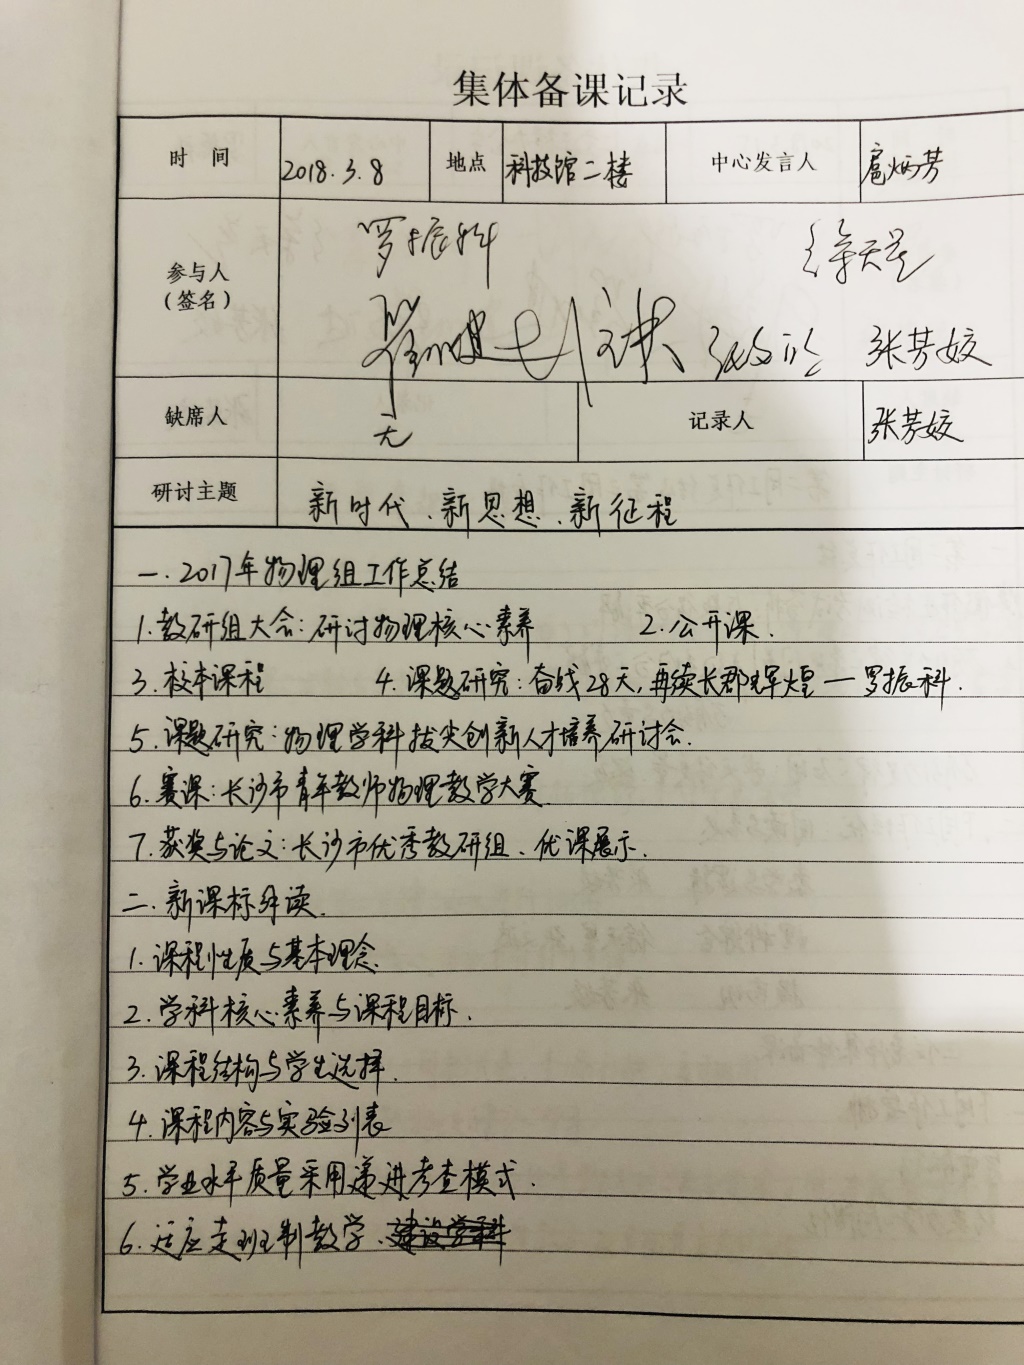 集体备课记录
时 间 2018.3.8 地点 科技馆二楼 中心发言人 扈炳芳
参与人
(签名)
罗振科 徐天星
张芳姣
缺席人 无 记录人 张芳姣
研讨主题 新时代、新思想、新征程
一.2017年物理组工作总结
1.教研组大会:研讨物理核心素养 2.公开课.
3.校本课程 4.课题研究:奋战28天,再续长郡辉煌—罗振科.
5.课题研究:物理学科拔尖创新人才培养研讨会.
6.赛课:长沙市青年教师物理教学大赛
7.获奖与论文:长沙市优秀教研组、优课展示.
二.新课标解读.
1.课程性质与基本理念
2.学科核心素养与课程目标.
3.课程结构与学生选择.
4.课程内容与实验列表
5.学业水平质量采用递进考查模式.
6.适应走班制教学、建设学科